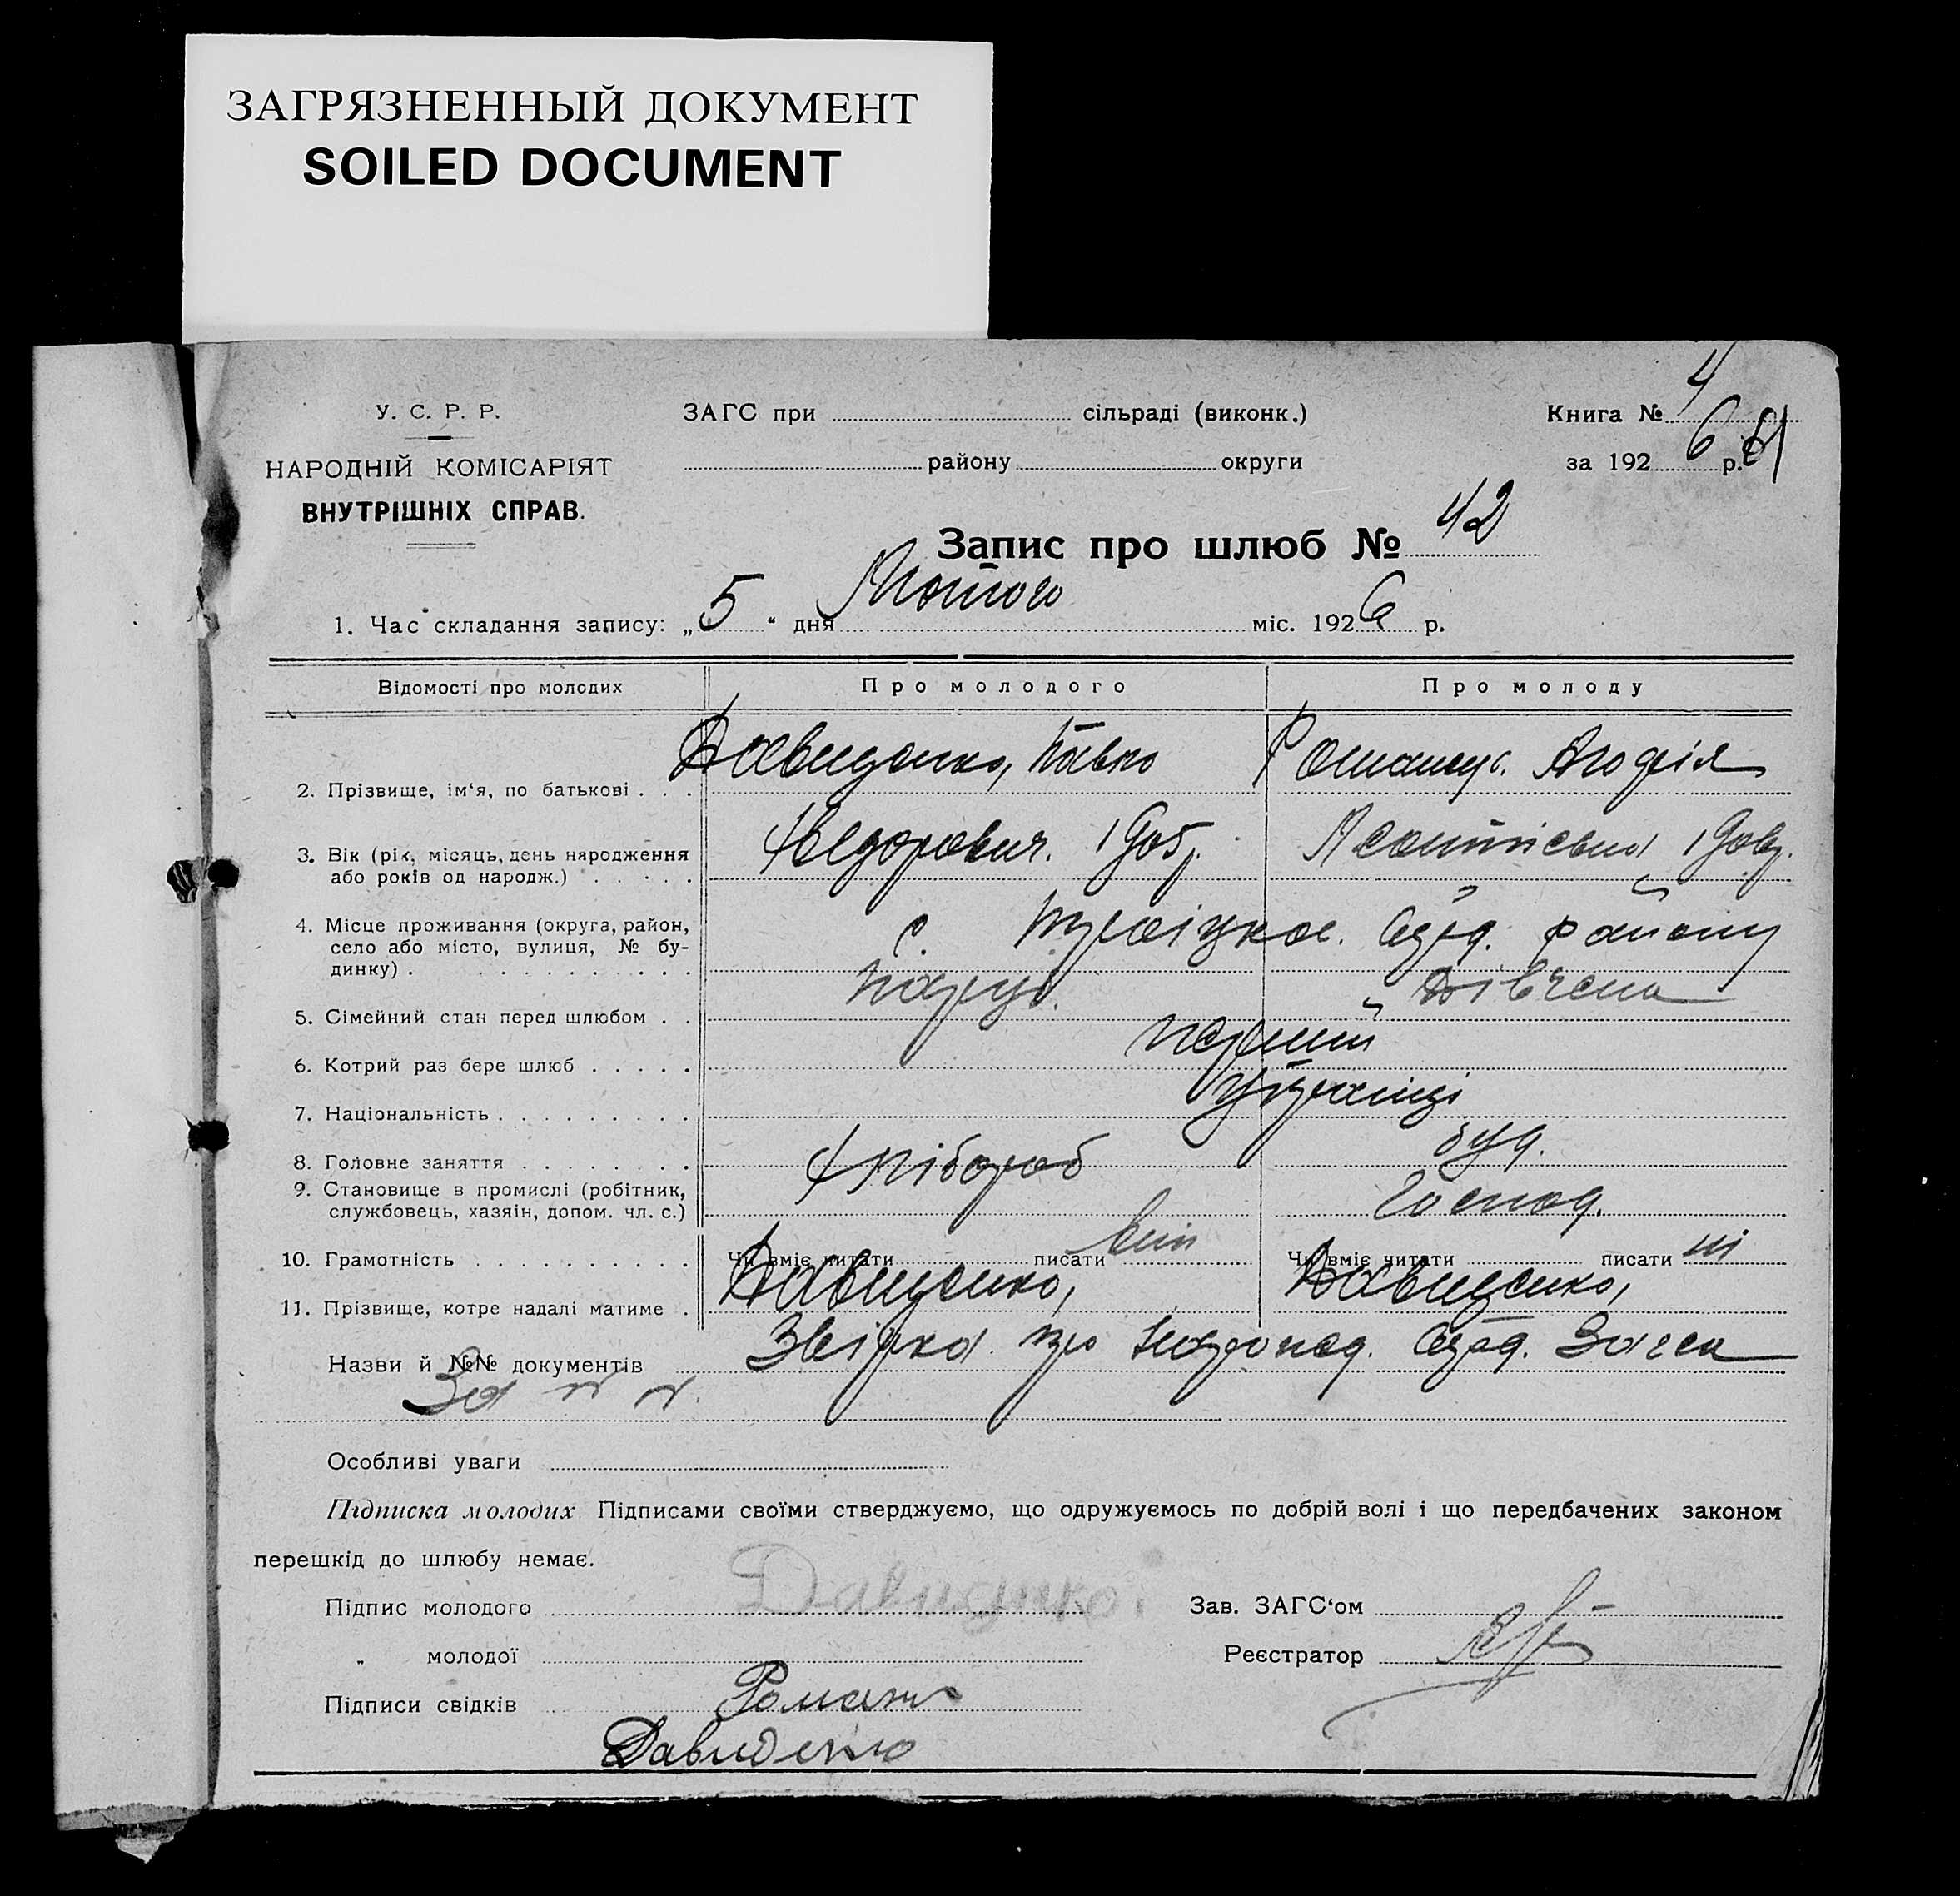 ЗАГРЯЗНЕННЫЙ ДОКУМЕНТ
SOILED DOCUMENT
У. С. Р. Р.
НАРОДНІЙ КОМІСАРІЯТ
ВНУТРІШНІХ СПРАВ.
ЗАГС при сільраді (виконк.)
району округи
Книга № 4
за 1926 р.
Запис про шлюб № 42
1. Час складання запису: „5“ дня Лютого міс. 1926 р.
Відомості про молодих Про молодого Про молоду
2. Прізвище, ім'я, по батькові . . . Давиденко, Павло
3. Вік (рік, місяць, день народження або років од народж.) . . . . . Федорович. 190
4. Місце проживання (округа, район, село або місто, вулиця, № будинку) . . . . . . . . . . . с. району
5. Сімейний стан перед шлюбом . . Паруб. Дівчена
6. Котрий раз бере шлюб . . . . . перший
7. Національність . . . . . . . . . українці
8. Головне заняття . . . . . . . . Хлібороб
9. Становище в промислі (робітник, службовець, хазяїн, допом. чл. с.) Господ.
10. Грамотність . . . . . . . . . . Чи вміє читати писати вміє Чи вміє читати писати ні
11. Прізвище, котре надалі матиме . Давиденко, Давиденко,
Назви й №№ документів Звірка про народжен. Загса
За №
Особливі уваги
Підписка молодих. Підписами своїми стверджуємо, що одружуємось по добрій волі і що передбачених законом
перешкід до шлюбу немає.
Підпис молодого Давиденко Зав. ЗАГС'ом
„ молодої Реєстратор
Підписи свідків Роман
Давиденко